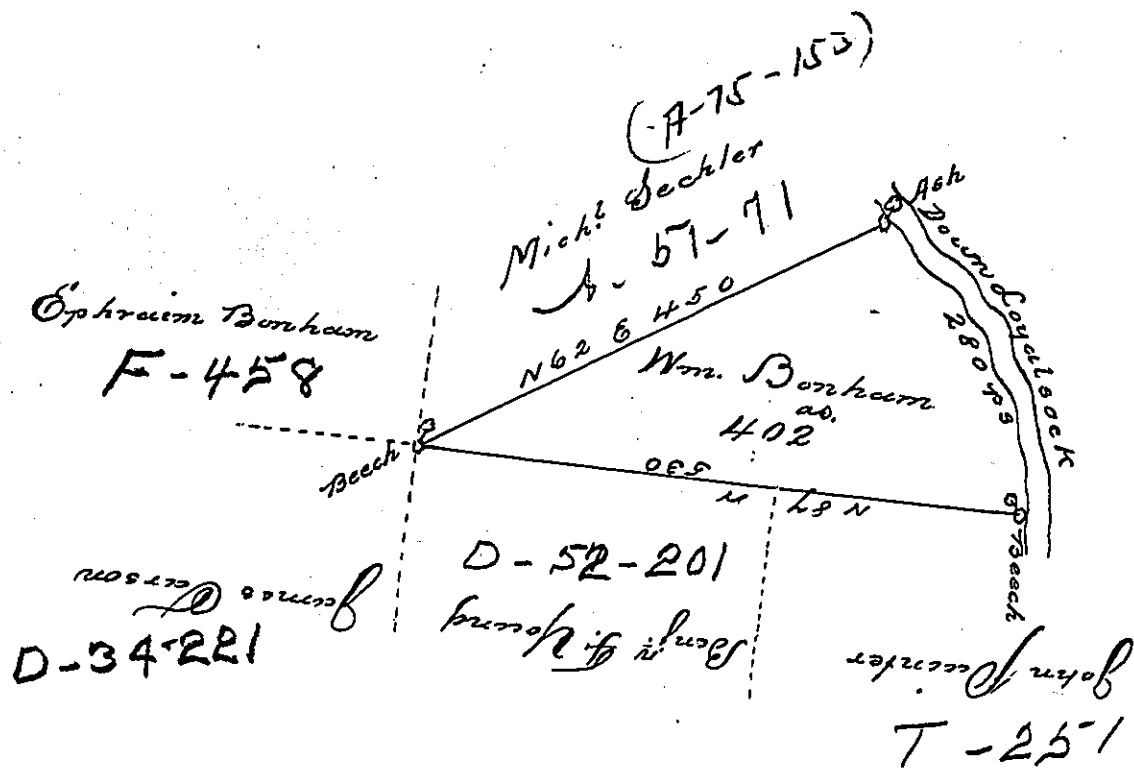 (A-75-153)
Mich.l Sechler
51-71
Ash
Down Loyalsock
280 ps
Ephraim Bonham
F-458
N 62 E 450
Wm. Bonham
402 as.
Beech
N 87 W 530
Beech
D-52-201
Benj.n F. Young
James Pearson
D-34-221
John Painter
T-251